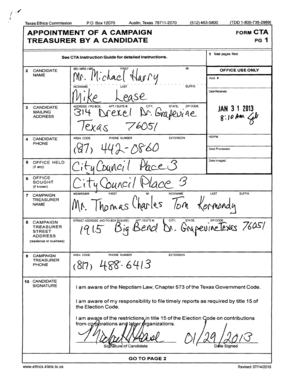 Texas Ethics Commission P.O. Box 12070 Austin, Texas 78711-2070 (512)463-5800 (TDD 1-800-735-2989)
APPOINTMENT OF A CAMPAIGN TREASURER BY A CANDIDATE
FORM CTA
PG 1
See CTA Instruction Guide for detailed instructions.
1 Total pages filed:
2 CANDIDATE NAME
MS / MRS / MR FIRST MI
Mr. Michael Harry
NICKNAME LAST SUFFIX
Mike Lease
OFFICE USE ONLY
Date Received
JAN 31 2013
8:10 am
3 CANDIDATE MAILING ADDRESS
ADDRESS / PO BOX; APT / SUITE #; CITY; STATE; ZIP CODE
314 Drexel Dr. Grapevine
Texas 76051
4 CANDIDATE PHONE
AREA CODE PHONE NUMBER EXTENSION
(817) 442-0860
Date Processed
5 OFFICE HELD (if any)
City Council Place 3
Date Imaged
6 OFFICE SOUGHT (if known)
City Council Place 3
7 CAMPAIGN TREASURER NAME
MS/MRS/MR FIRST MI NICKNAME LAST SUFFIX
Mr. Thomas Charles Tom
8 CAMPAIGN TREASURER STREET ADDRESS
(residence or business)
STREET ADDRESS (NO PO BOX PLEASE); APT / SUITE #; CITY; STATE; ZIP CODE
1915 Big Bend Dr. Grapevine Texas 76051
9 CAMPAIGN TREASURER PHONE
AREA CODE PHONE NUMBER EXTENSION
(817) 488-6413
10 CANDIDATE SIGNATURE
I am aware of the Nepotism Law, Chapter 573 of the Texas Government Code.
I am aware of my responsibility to file timely reports as required by title 15 of the Election Code.
I am aware of the restrictions in title 15 of the Election Code on contributions from corporations and labor organizations.
01/29/2013
Signature of Candidate Date Signed
GO TO PAGE 2
www.ethics.state.tx.us Revised 07/14/2010